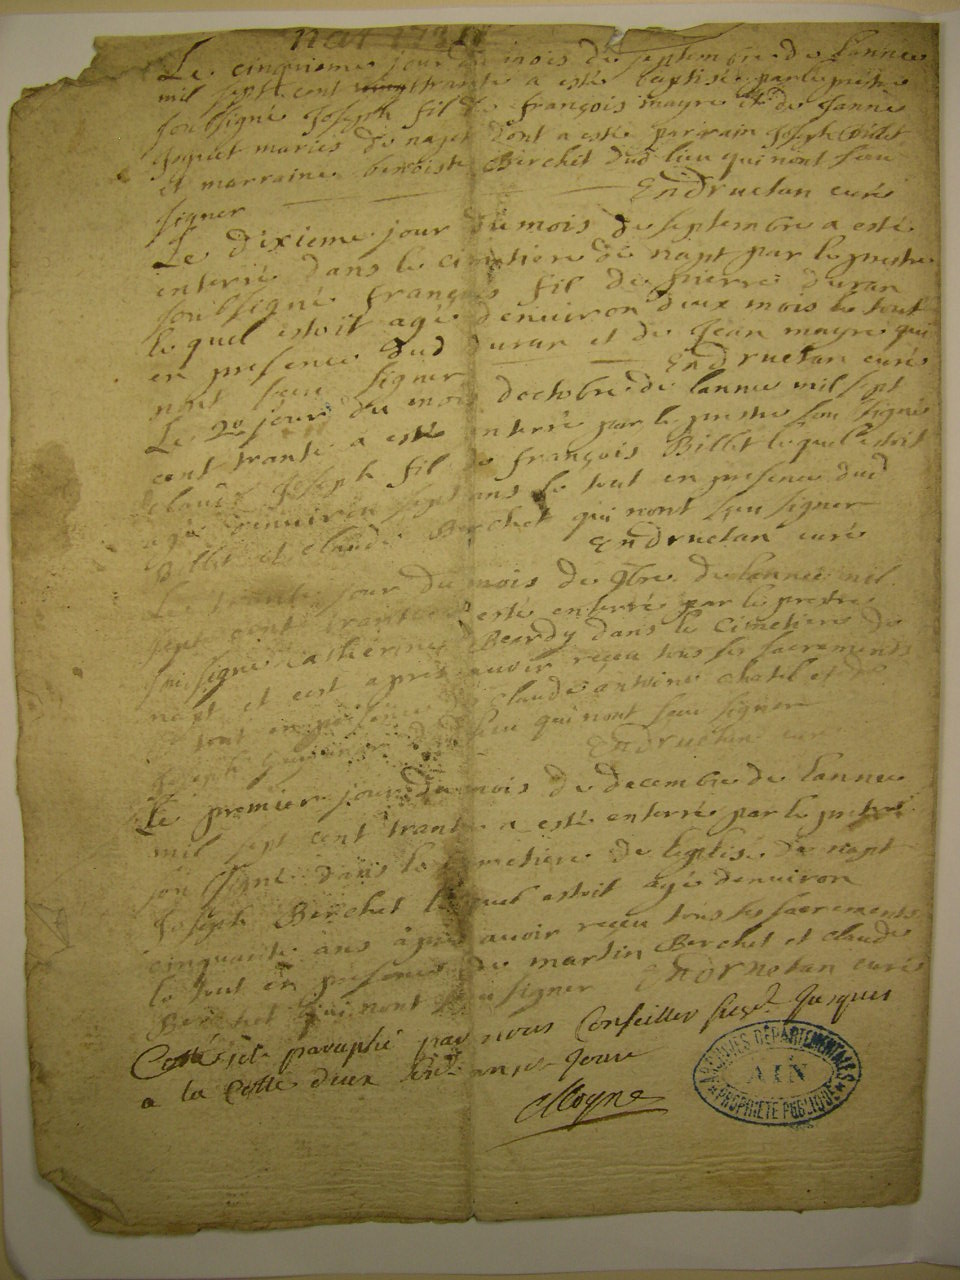 nat 173
Le cinquieme jour du mois de septembre de lannee
mil sept cent trante a esté baptisé par le pretre
soubsigné Joseph fil de françois mayre et de Janne
maries de napt dont a esté parrain Joseph Billet
et marraine benoiste Berchet dud lieu qui nont sceu
signer Endruetan curé
Le dixieme jour du mois de septembre a esté
enterré dans le cimetiere de napt par le prestre
soubsigné françois fil de pierre duran
le quel estoit agé denuiron deux mois le tout
en presence dud duran et de Jean mayre qui
nont sceu signer Endruetan curé
Le 20 jour du mois doctobre de lannee mil sept
cent trante a esté enterré par le prestre sou signé
claude Joseph fil de françois Billet lequel estoit
agé denuiron sept ans le tout en presence dud
Billet et claude Berchet qui nont sceu signer
Endruetan curé
Le trante jour du mois de 9bre de lannee mil
sept cent trante a esté enterré par le prestre
sousigné catherine Beardy dans le cimetiere de
napt et cest apres auoir receu tous les sacrements
le tout en presence de claude antoine chatel et de
Joseph dud lieu qui nont sceu signer
Endruetan curé
Le premier jour du mois de decembre de lannee
mil sept cent trante a esté enterré par le pretre
soubsigné dans le cimetiere de leglise de napt
Joseph Berchet le quel estoit agé denuiron
cinquante ans apres auoir receu tous les sacrements
le tout en presence de martin Berchet et claude
Berchet qui nont sceu signer Endruetan curé
Cotté et paraphé par nous Conseiller Jusques
a la Cotte deux
ARCHIVES DÉPARTEMENTALES
AIN
PROPRIÉTÉ PUBLIQUE